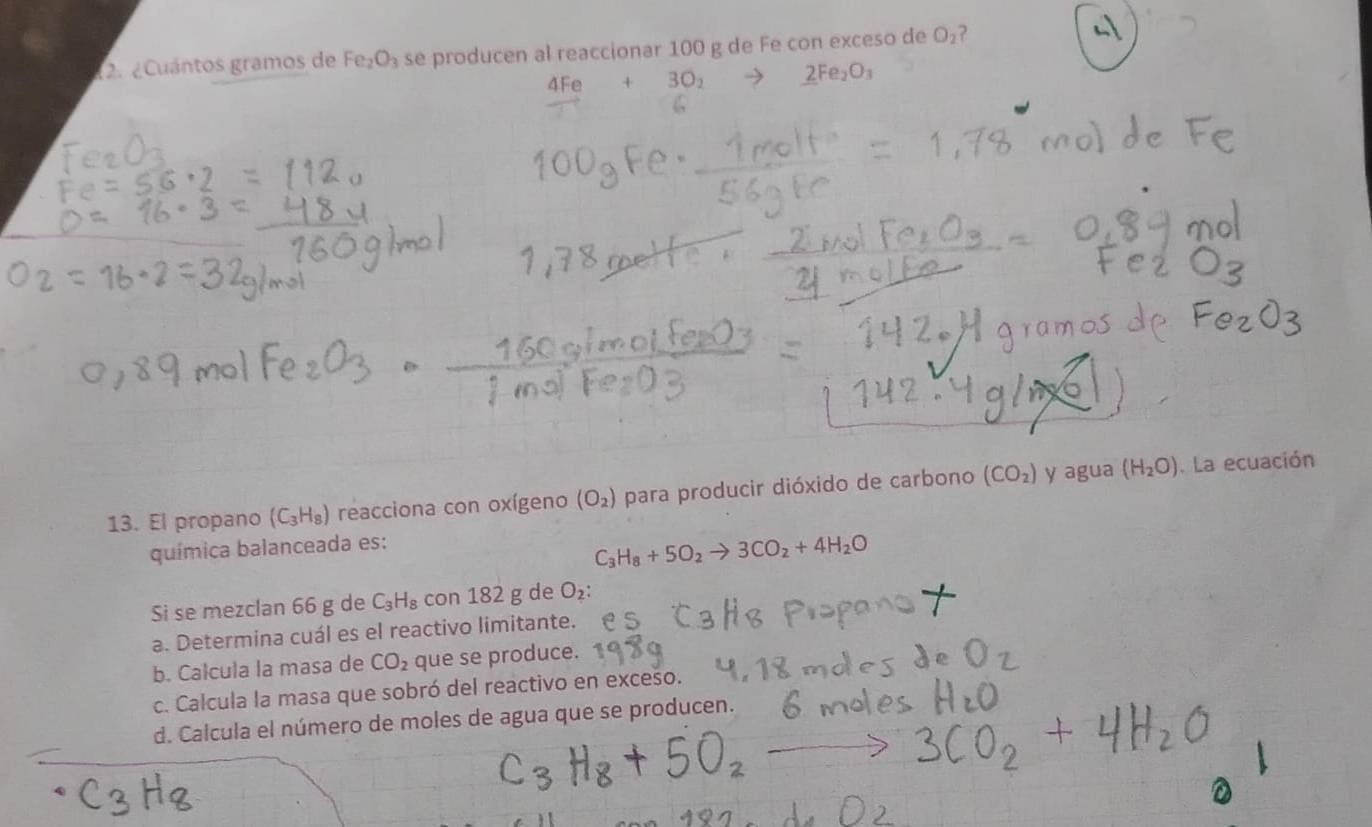 12. ¿Cuántos gramos de Fe₂O₃ se producen al reaccionar 100 g de Fe con exceso de O₂?
4
4Fe + 3O₂ → 2Fe₂O₃
6
Fe2O3
Fe = 56·2 = 112
O = 16·3 = 48
160g/mol
O2 = 16·2=32g/mol
100g Fe · 1mol Fe / 56g Fe = 1,78 mol de Fe
1,78 mol Fe · 2 mol Fe2O3 / 4 mol Fe = 0,89 mol Fe2O3
0,89 mol Fe2O3 · 160g/mol Fe2O3 / 1 mol Fe2O3 = 142.4 gramos de Fe2O3
142.4 g/mol
13. El propano (C₃H₈) reacciona con oxígeno (O₂) para producir dióxido de carbono (CO₂) y agua (H₂O). La ecuación
química balanceada es:
C₃H₈ + 5O₂ → 3CO₂ + 4H₂O
Si se mezclan 66 g de C₃H₈ con 182 g de O₂:
a. Determina cuál es el reactivo limitante. es C3H8 Propano
b. Calcula la masa de CO₂ que se produce. 198g
c. Calcula la masa que sobró del reactivo en exceso. 4.18 moles de O2
d. Calcula el número de moles de agua que se producen. 6 moles H2O
C3H8 + 5O2 → 3CO2 + 4H2O
· C3H8
182 de O2